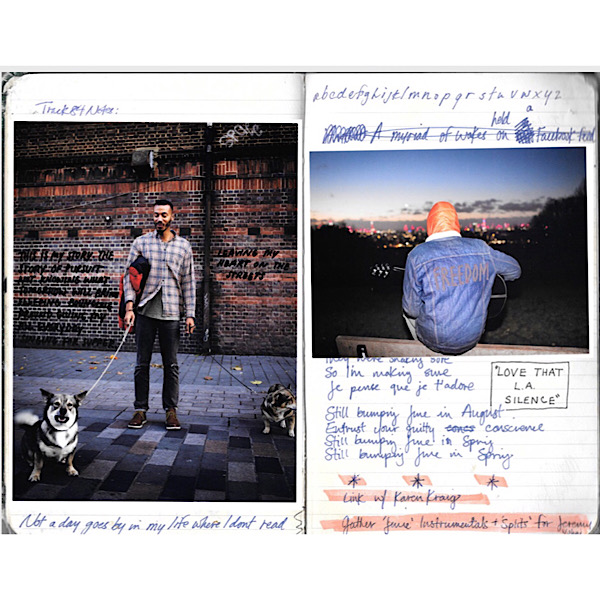 Track Notes:
THIS IS MY STORY. THE
STORY OF PURSUIT
LEAVING MY
HEART ON THE
STREETS
Not a day goes by in my life where I dont read
abcdefghijklmnopqrstuvwxyz
hold a
A myriad of wakes on Facebook feed
FREEDOM
They were shaking sure
So I'm making sure
Je pense que je t'adore
"LOVE THAT
L.A.
SILENCE"
Still bumping June in August
Entrust your guilty conscience
Still bumping June in Spring
Still bumping June in Spring
* * *
Link w/ Karen Krauge
Gather 'June' Instrumentals + 'Splits' for Jeremy